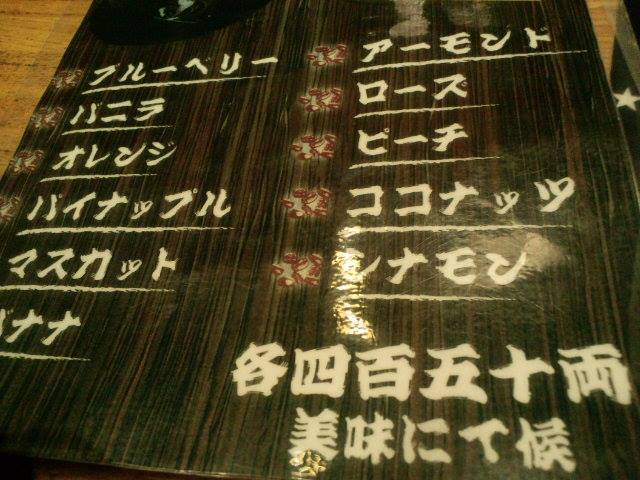 ブルーベリー
バニラ
オレンジ
パイナップル
マスカット
バナナ
アーモンド
ローズ
ピーチ
ココナッツ
シナモン
各四百五十両
美味にて候